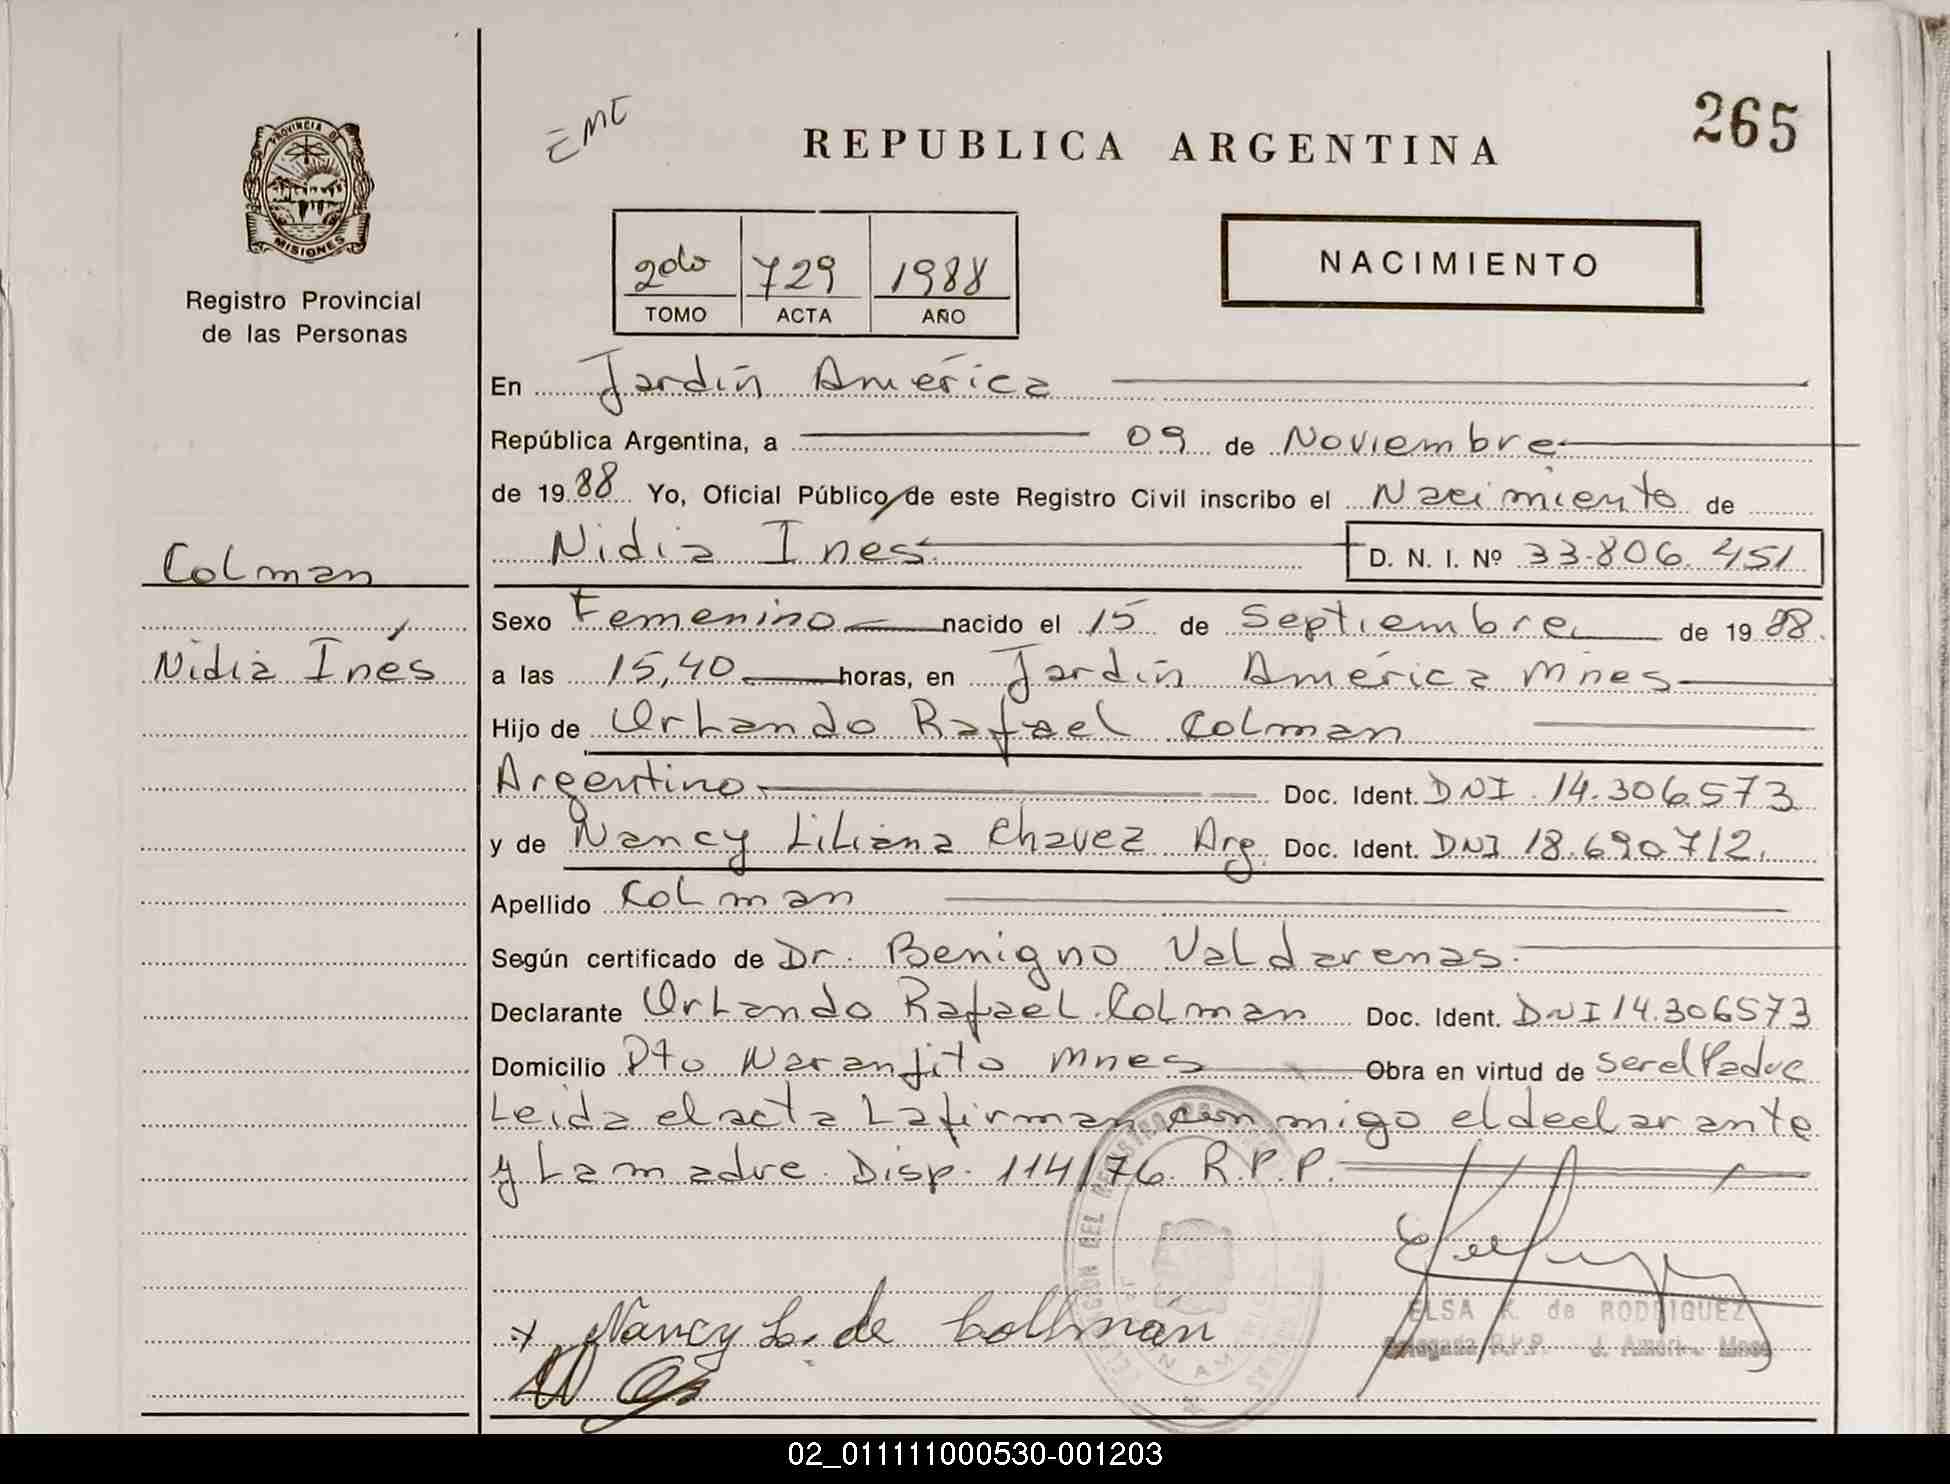 EME
REPUBLICA ARGENTINA
265
PROVINCIA DE
MISIONES
Registro Provincial
de las Personas
2do 729 1988
TOMO ACTA AÑO
NACIMIENTO
En Jardín América
República Argentina, a 09 de Noviembre
de 1988 Yo, Oficial Público de este Registro Civil inscribo el Nacimiento de
Nidia Ines D. N. I. Nº 33.806.451
Colman
Nidia Inés
Sexo Femenino nacido el 15 de Septiembre de 1988.
a las 15,40 horas, en Jardín América Mnes
Hijo de Orlando Rafael Colman
Argentino Doc. Ident. DNI 14.306573
y de Nancy Liliana Chavez Arg. Doc. Ident. DNI 18.690712.
Apellido Colman
Según certificado de Dr. Benigno Valdarenas.
Declarante Orlando Rafael Colman Doc. Ident. DNI 14.306573
Domicilio Pto Naranjito Mnes Obra en virtud de ser el Padre
Leida el acta La firman conmigo el declarante
y La madre. Disp. 114/76 R.P.P.
Nancy L. de Collman
ELSA K. de RODRIGUEZ
Delegada R.P.P. J. Améri. Mnes
02_011111000530-001203